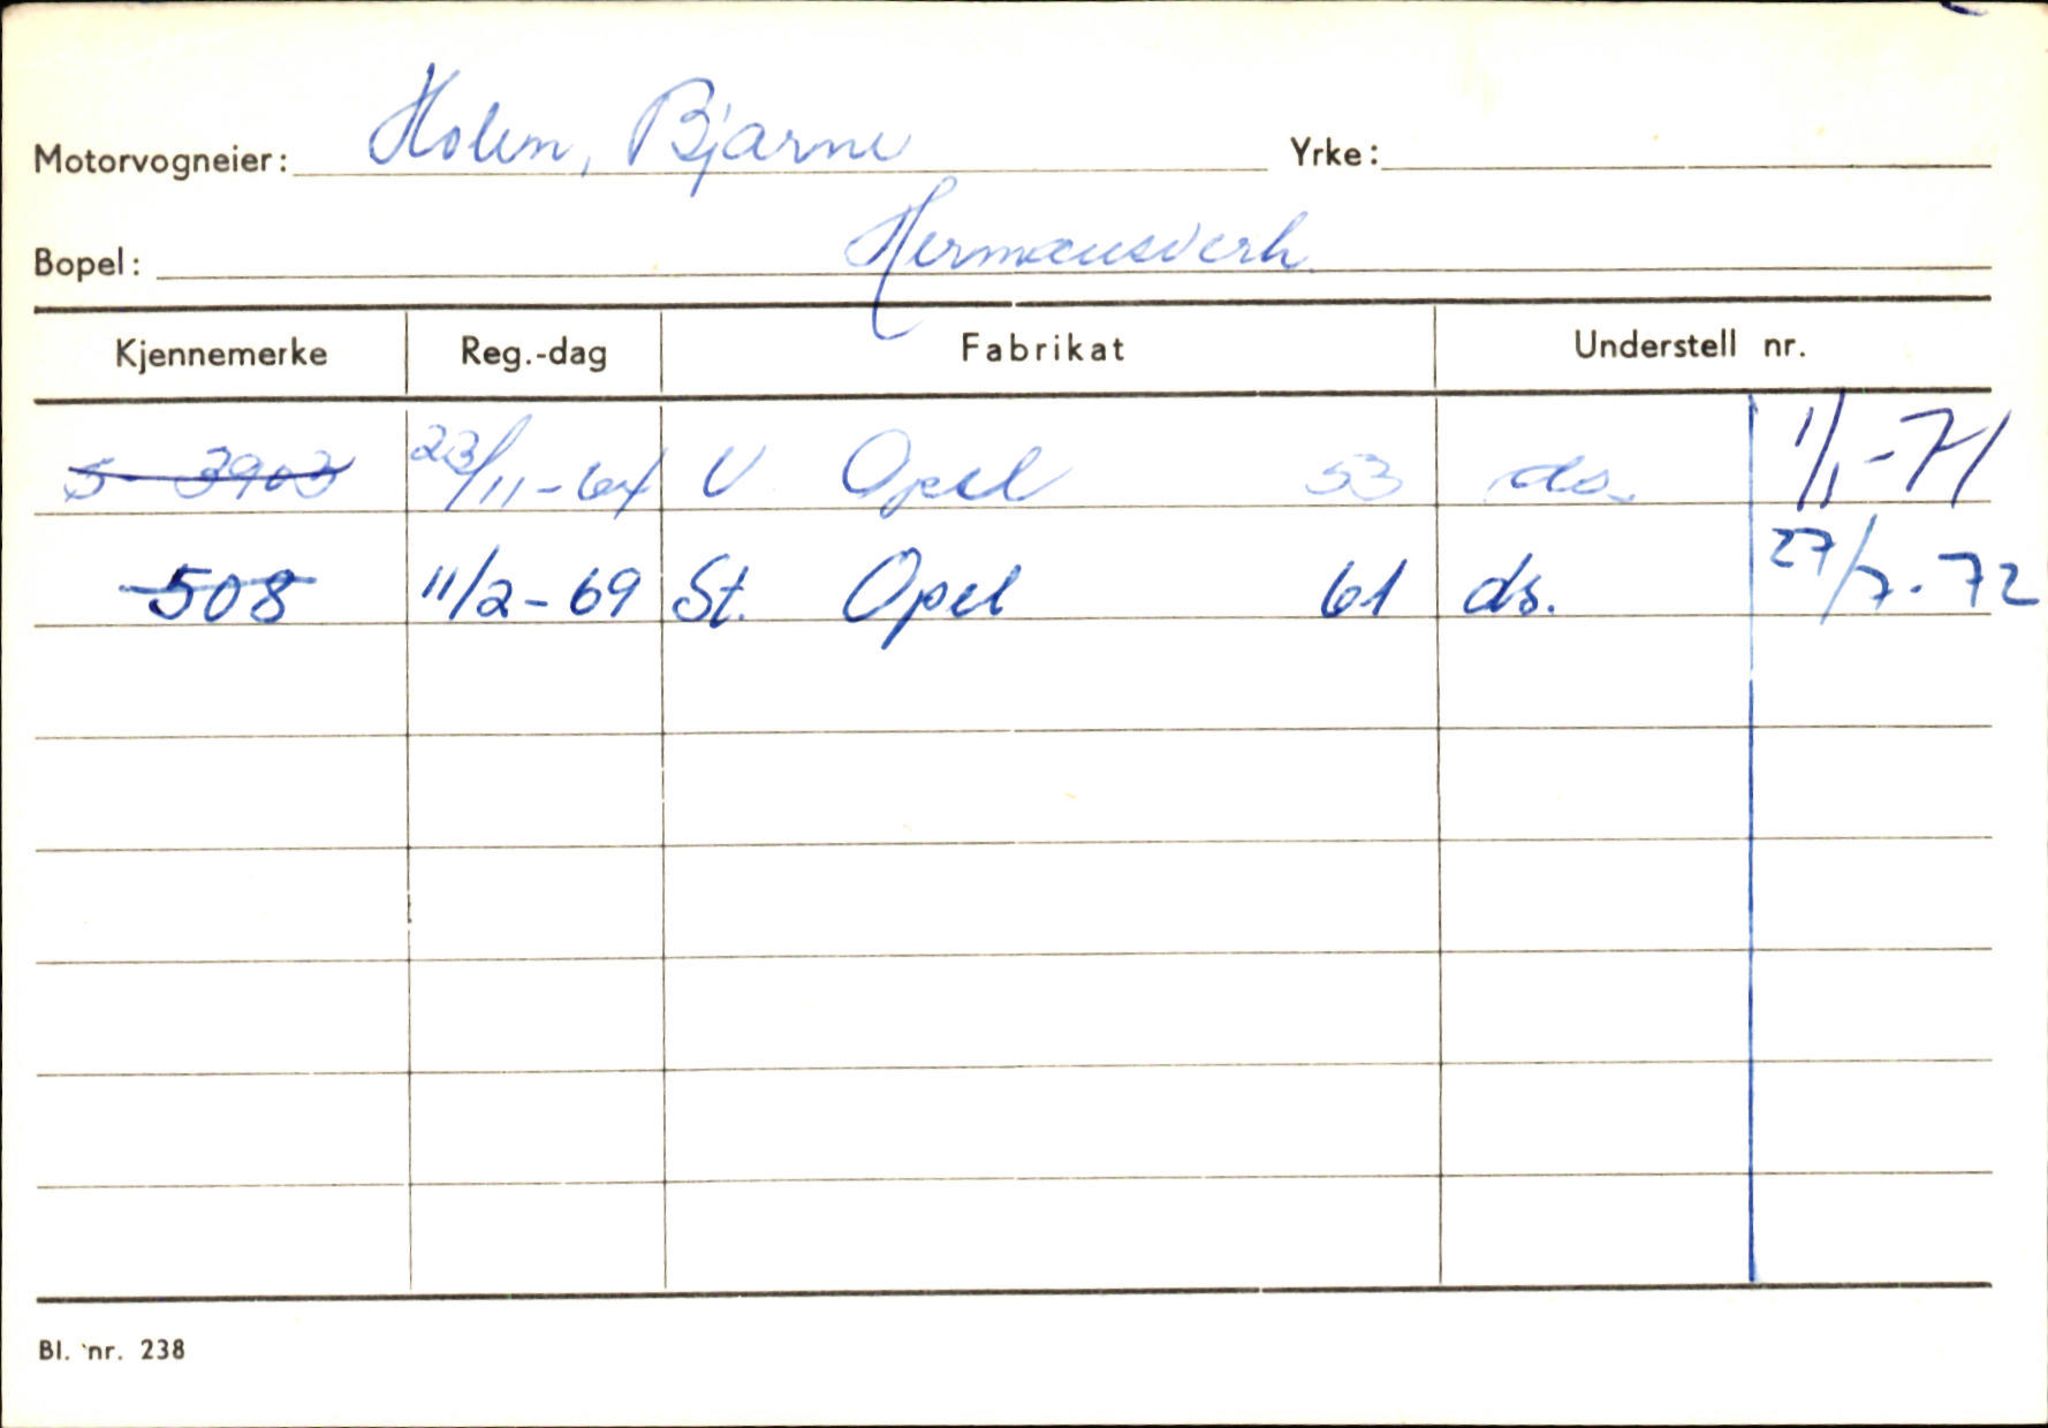 Motorvogneier: Holen, Bjarne Yrke:
Bopel: Hermansverk
Kjennemerke Reg.-dag Fabrikat Understell nr.
S 3903 23/11-64 V Opel 53 ds. 1/1-71
508 11/2-69 St. Opel 61 ds. 27/7-72
Bl. nr. 238